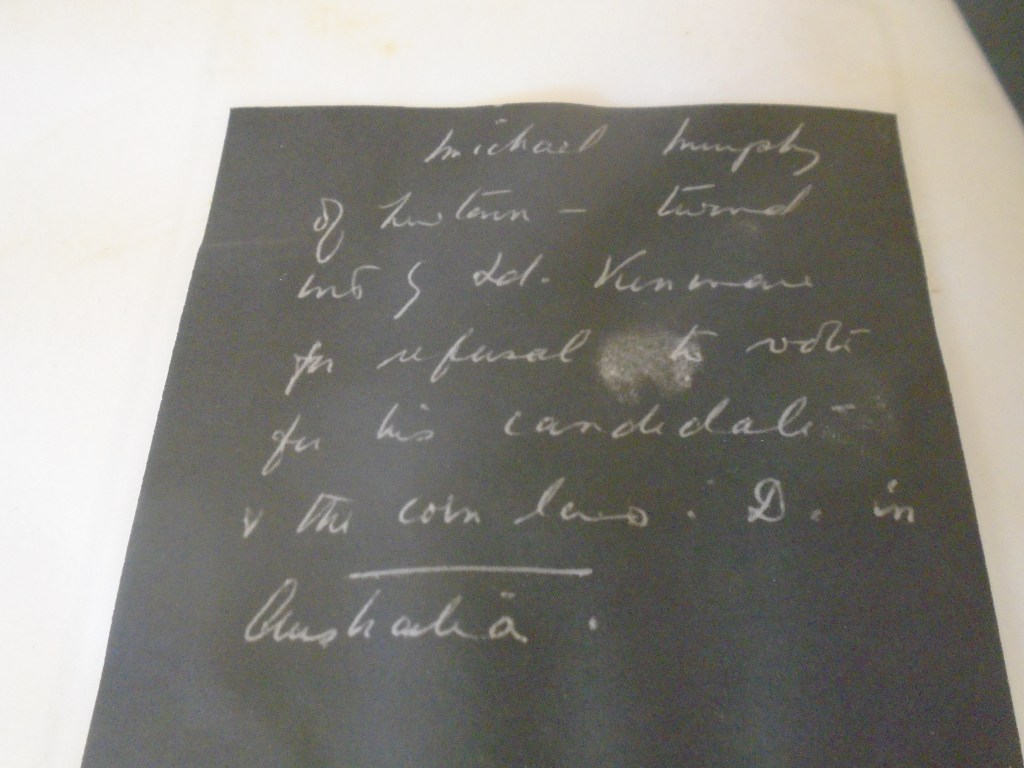 Michael Murphy
of Newtown - turned
out by Ld. Kenmare
for refusal to vote
for his candidate
v the corn laws. D. in
Australia.